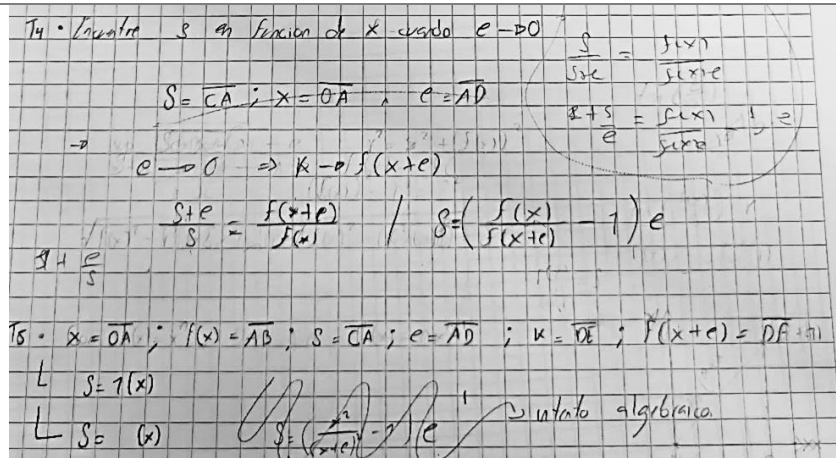 T4 · Encuentre S en función de x cuando e → 0
S = CA ; x = OA , e = AD
S/(S+e) = f(x)/f(x+e)
e → 0 ⇒ K → f(x+e)
(S+e)/S = f(x+e)/f(x) / S = ( f(x)/f(x+e) − 1 ) e
1 + e/S
T5 · x = OA ; f(x) = AB ; S = CA ; e = AD ; K = DE ; f(x+e) = DF
S = 1(x)
S = (x)
S = ( x²/(x+e)² − 1 ) e intento algebraico